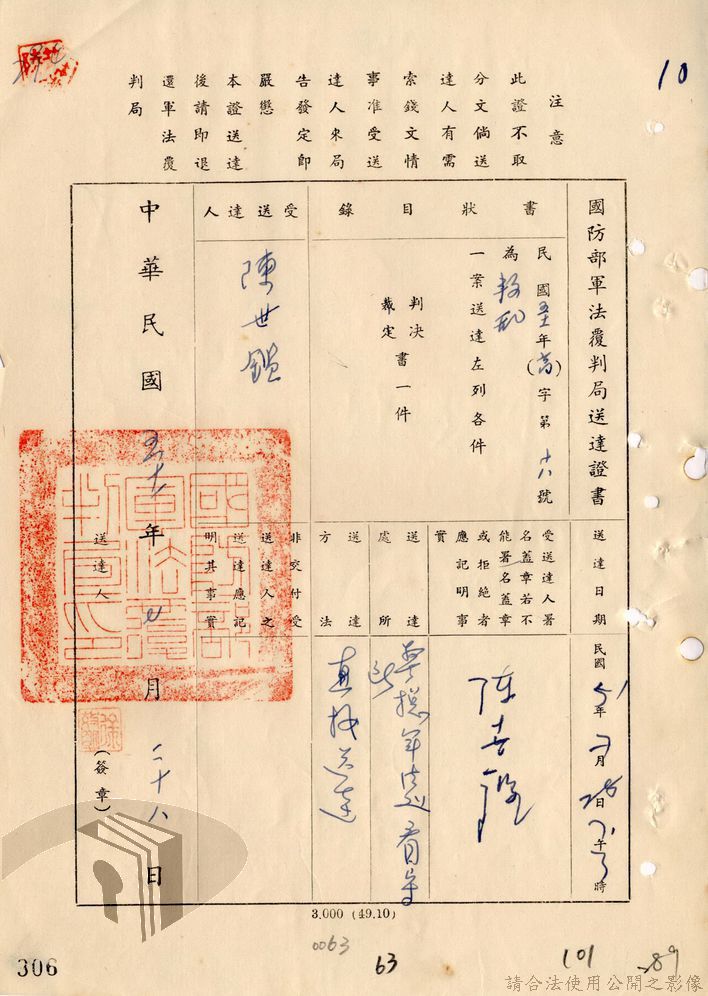 10
注意
此證不取
分文倘送
達人有需
索錢文情
事准受送
達人來局
告發定即
嚴懲
本證送達
後請即退
還軍法覆
判局
國防部軍法覆判局送達證書
書狀目錄
民國五十一年(高)字第十八號
為叛亂
一案送達左列各件
判決
裁定
書一件
受送達人
陳世鑑
送達日期
民國51年 月28日 午 時
受送達人署
名蓋章若不
能署名蓋章
或拒絕者
應記明事
實
送達處所
送達方法
直接送達
非交付受
送達人之
送達應記
明其事實
中華民國五十一年 月二十八日
送達人
(簽章)
國防部軍法覆判局印
3,000 (49.10)
0063
63
101
89
306
請合法使用公開之影像